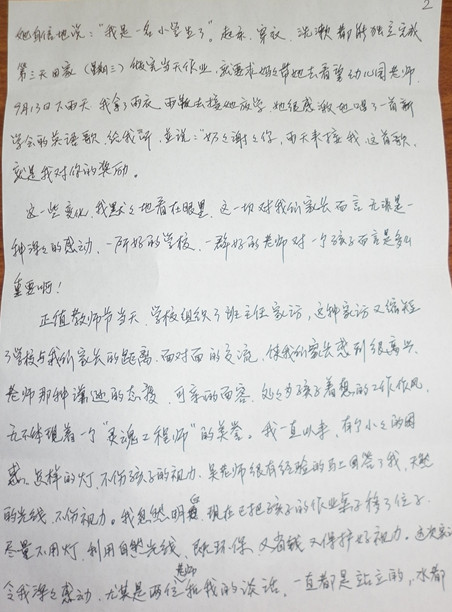 2
她自信地说："我是一名小学生了"。起床、穿衣、洗漱都能独立完成
第三天回家（星期三）做完当天作业，就要求奶奶带她去看望幼儿园老师.
9月13日下雨天，我拿了雨衣、雨鞋去接她放学，她很感激地唱了一首新
学会的英语歌给我听，并说："奶奶谢谢你，雨天来接我，这首歌，
就是我对你的奖励。
这一些变化，我默默地看在眼里，这一切对我们家长而言无疑是一
种深深的感动，一所好的学校，一群好的老师对一个孩子而言是多么
重要啊！
正值教师节当天，学校组织了班主任家访，这种家访又缩短
了学校与我们家长的距离，面对面的交流，使我们家长感到很高兴，
老师那种谦逊的态度，可亲的面容，处处为孩子着想的工作作风，
无不体现着一个"灵魂工程师"的美誉。我一直以来，有个小小的困
惑，怎样的灯，不伤孩子的视力，吴老师很有经验的马上回答了我，天然
的光线，不伤视力。我忽然明白，现在已把孩子的作业桌子移了位子.
尽量不用灯，利用自然光线，既环保，又省钱，又保护好视力。这次家访
令我深深感动，尤其是两位老师和我的谈话，一直都是站立的，水都